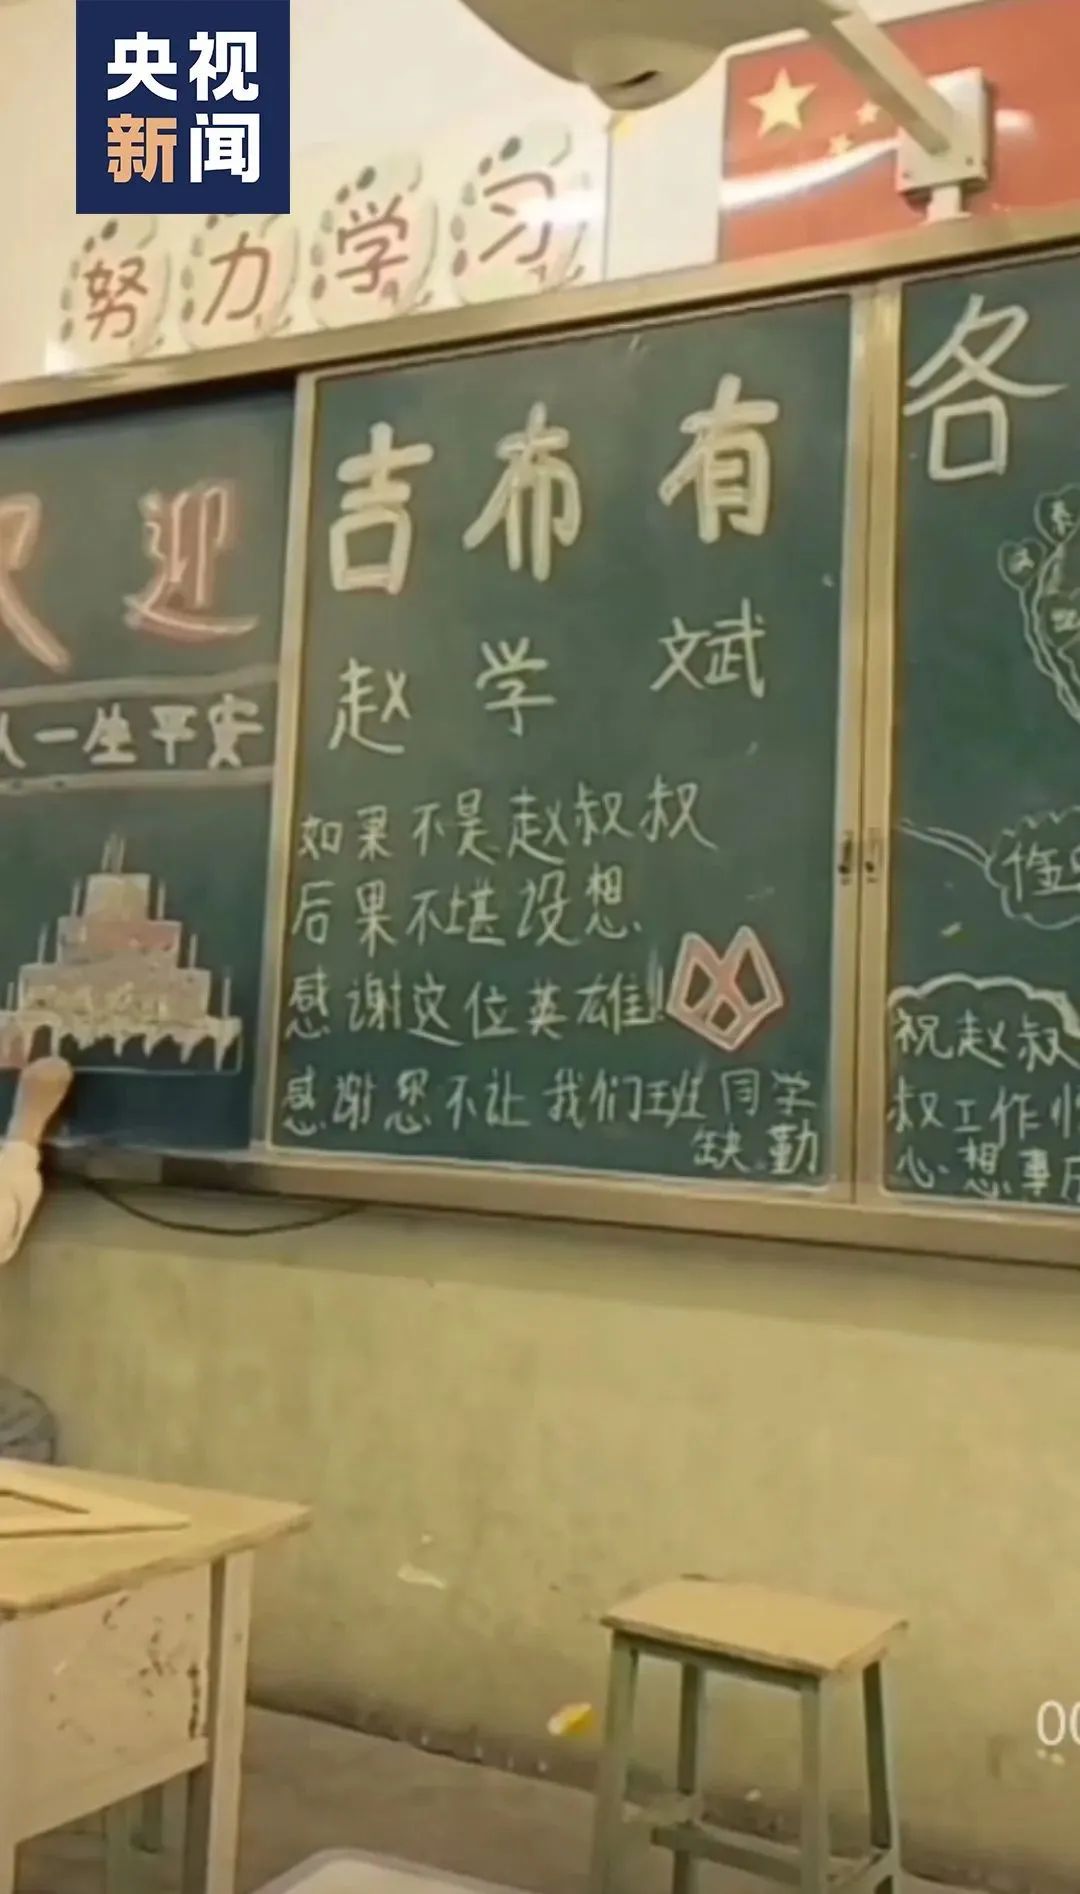 央视
新闻
努力学习
欢迎
人一生平安
吉布有
赵学斌
如果不是赵叔叔
后果不堪设想
感谢这位英雄!
感谢您不让我们班同学
缺勤
各
祝赵叔
叔工作
心想事
00